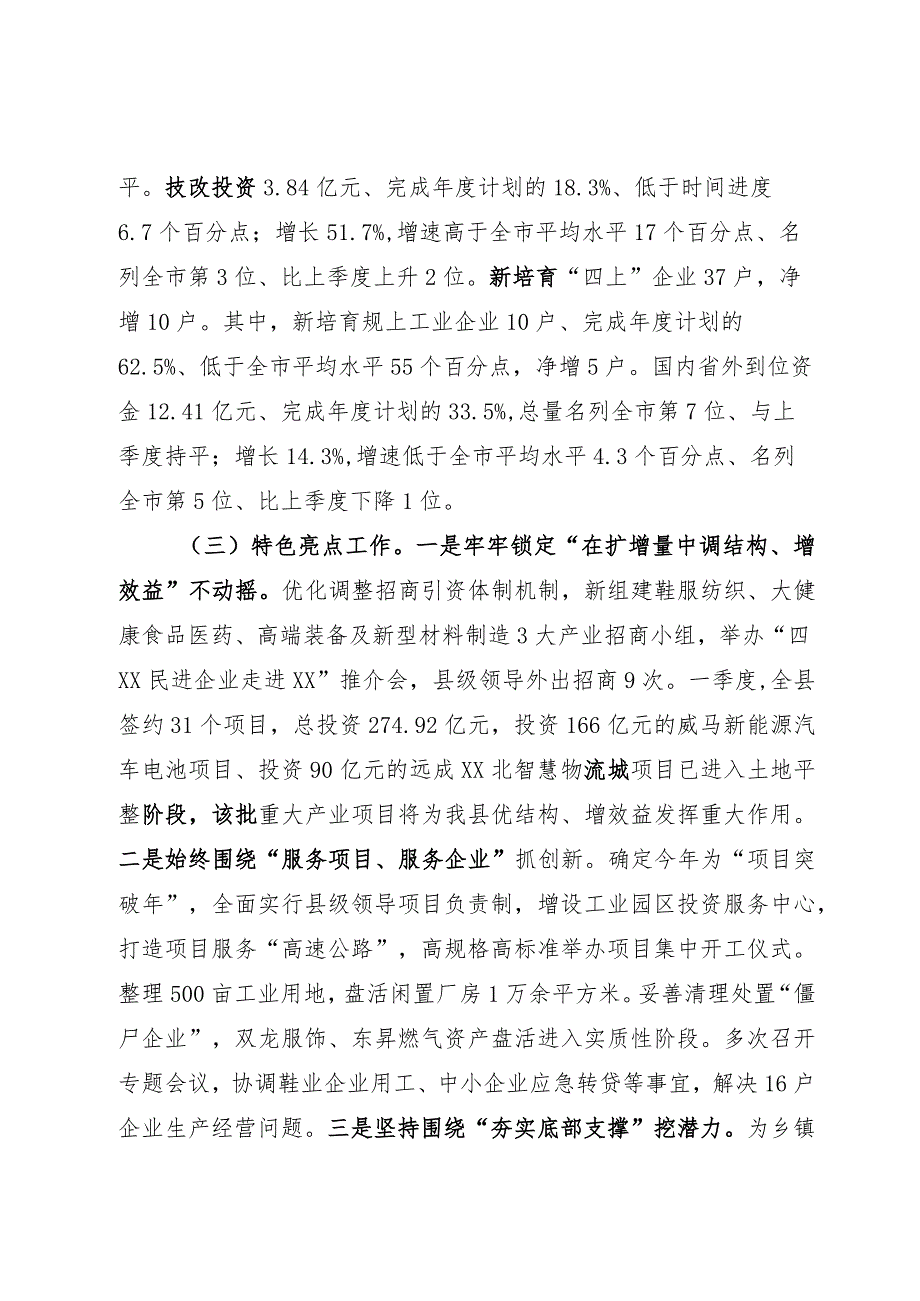 平。技改投资 3.84 亿元、完成年度计划的 18.3%、低于时间进度
6.7 个百分点；增长 51.7%,增速高于全市平均水平 17 个百分点、名
列全市第 3 位、比上季度上升 2 位。新培育“四上”企业 37 户，净
增 10 户。其中，新培育规上工业企业 10 户、完成年度计划的
62.5%、低于全市平均水平 55 个百分点，净增 5 户。国内省外到位资
金 12.41 亿元、完成年度计划的 33.5%,总量名列全市第 7 位、与上
季度持平；增长 14.3%,增速低于全市平均水平 4.3 个百分点、名列
全市第 5 位、比上季度下降 1 位。
（三）特色亮点工作。一是牢牢锁定“在扩增量中调结构、增
效益”不动摇。优化调整招商引资体制机制，新组建鞋服纺织、大健
康食品医药、高端装备及新型材料制造 3 大产业招商小组，举办“四
XX 民进企业走进 XX”推介会，县级领导外出招商 9 次。一季度,全县
签约 31 个项目，总投资 274.92 亿元，投资 166 亿元的威马新能源汽
车电池项目、投资 90 亿元的远成 XX 北智慧物流城项目已进入土地平
整阶段，该批重大产业项目将为我县优结构、增效益发挥重大作用。
二是始终围绕“服务项目、服务企业”抓创新。确定今年为“项目突
破年”，全面实行县级领导项目负责制，增设工业园区投资服务中心，
打造项目服务“高速公路”，高规格高标准举办项目集中开工仪式。
整理 500 亩工业用地，盘活闲置厂房 1 万余平方米。妥善清理处置“僵
尸企业”，双龙服饰、东昇燃气资产盘活进入实质性阶段。多次召开
专题会议，协调鞋业企业用工、中小企业应急转贷等事宜，解决 16 户
企业生产经营问题。三是坚持围绕“夯实底部支撑”挖潜力。为乡镇